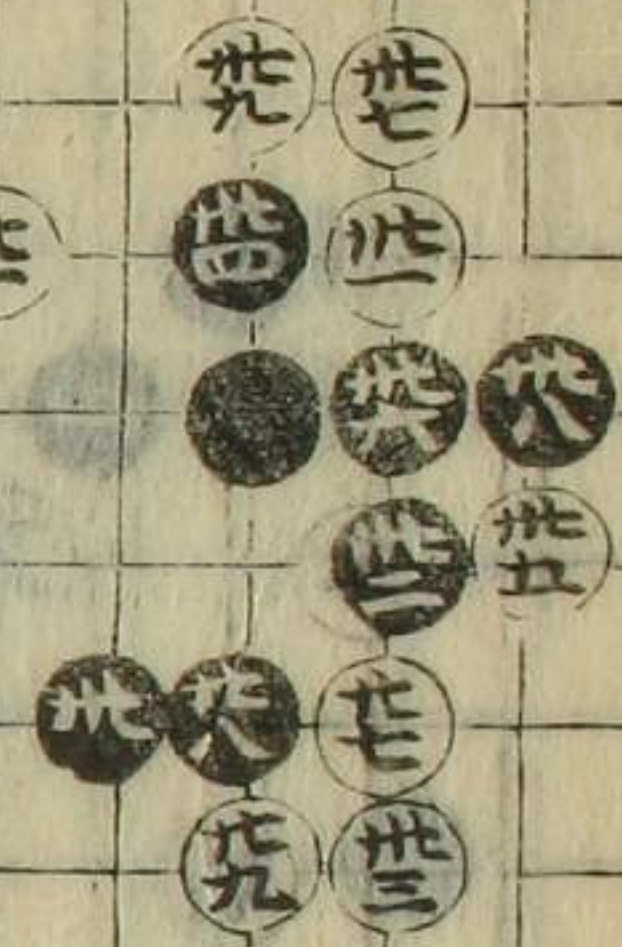 卅九 卅七
卅四 卅一
卅六 卅八
卅二 卅五
卅 廿八 廿七
廿九 卅三